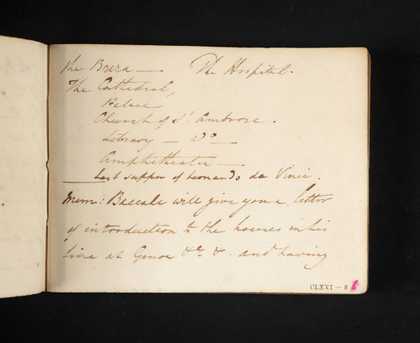 the Brera — The Hospital.
The Cathedral,
Palace
Church of St Ambrose.
Library — Do —
Amphitheatre —
Last supper of Leonardo da Vinci.
Mem: will give you a letter
of introduction to the houses in his
line at Genoa &c &c. and having
CLXXI — 8